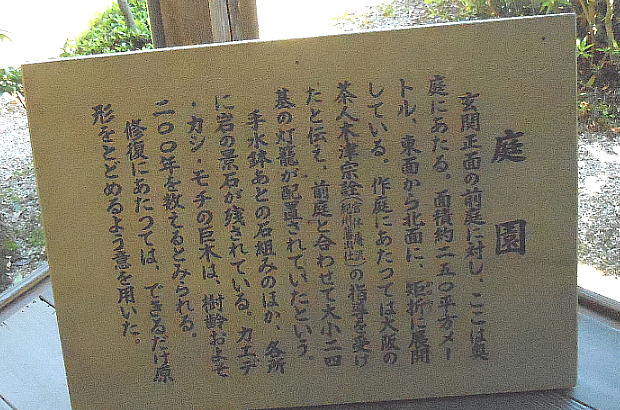 庭園
玄関正面の前庭に対し、ここは奥
庭にあたる。面積約二五〇平方メー
トル、東面から北面に、矩折に展開
している。作庭にあたつては大阪の
茶人木津宗詮(官休庵流紀州藩出仕)の指導を受け
たと伝え、前庭と合わせて大小二四
基の灯籠が配導されていたという。
手水鉢あとの石組みのほか、各所
に岩の景石が残されている。カエデ
・カシ・モチの巨木は、樹齢およそ
二〇〇年を数えるとみられる。
修復にあたつては、できるだけ原
形をとどめるよう意を用いた。